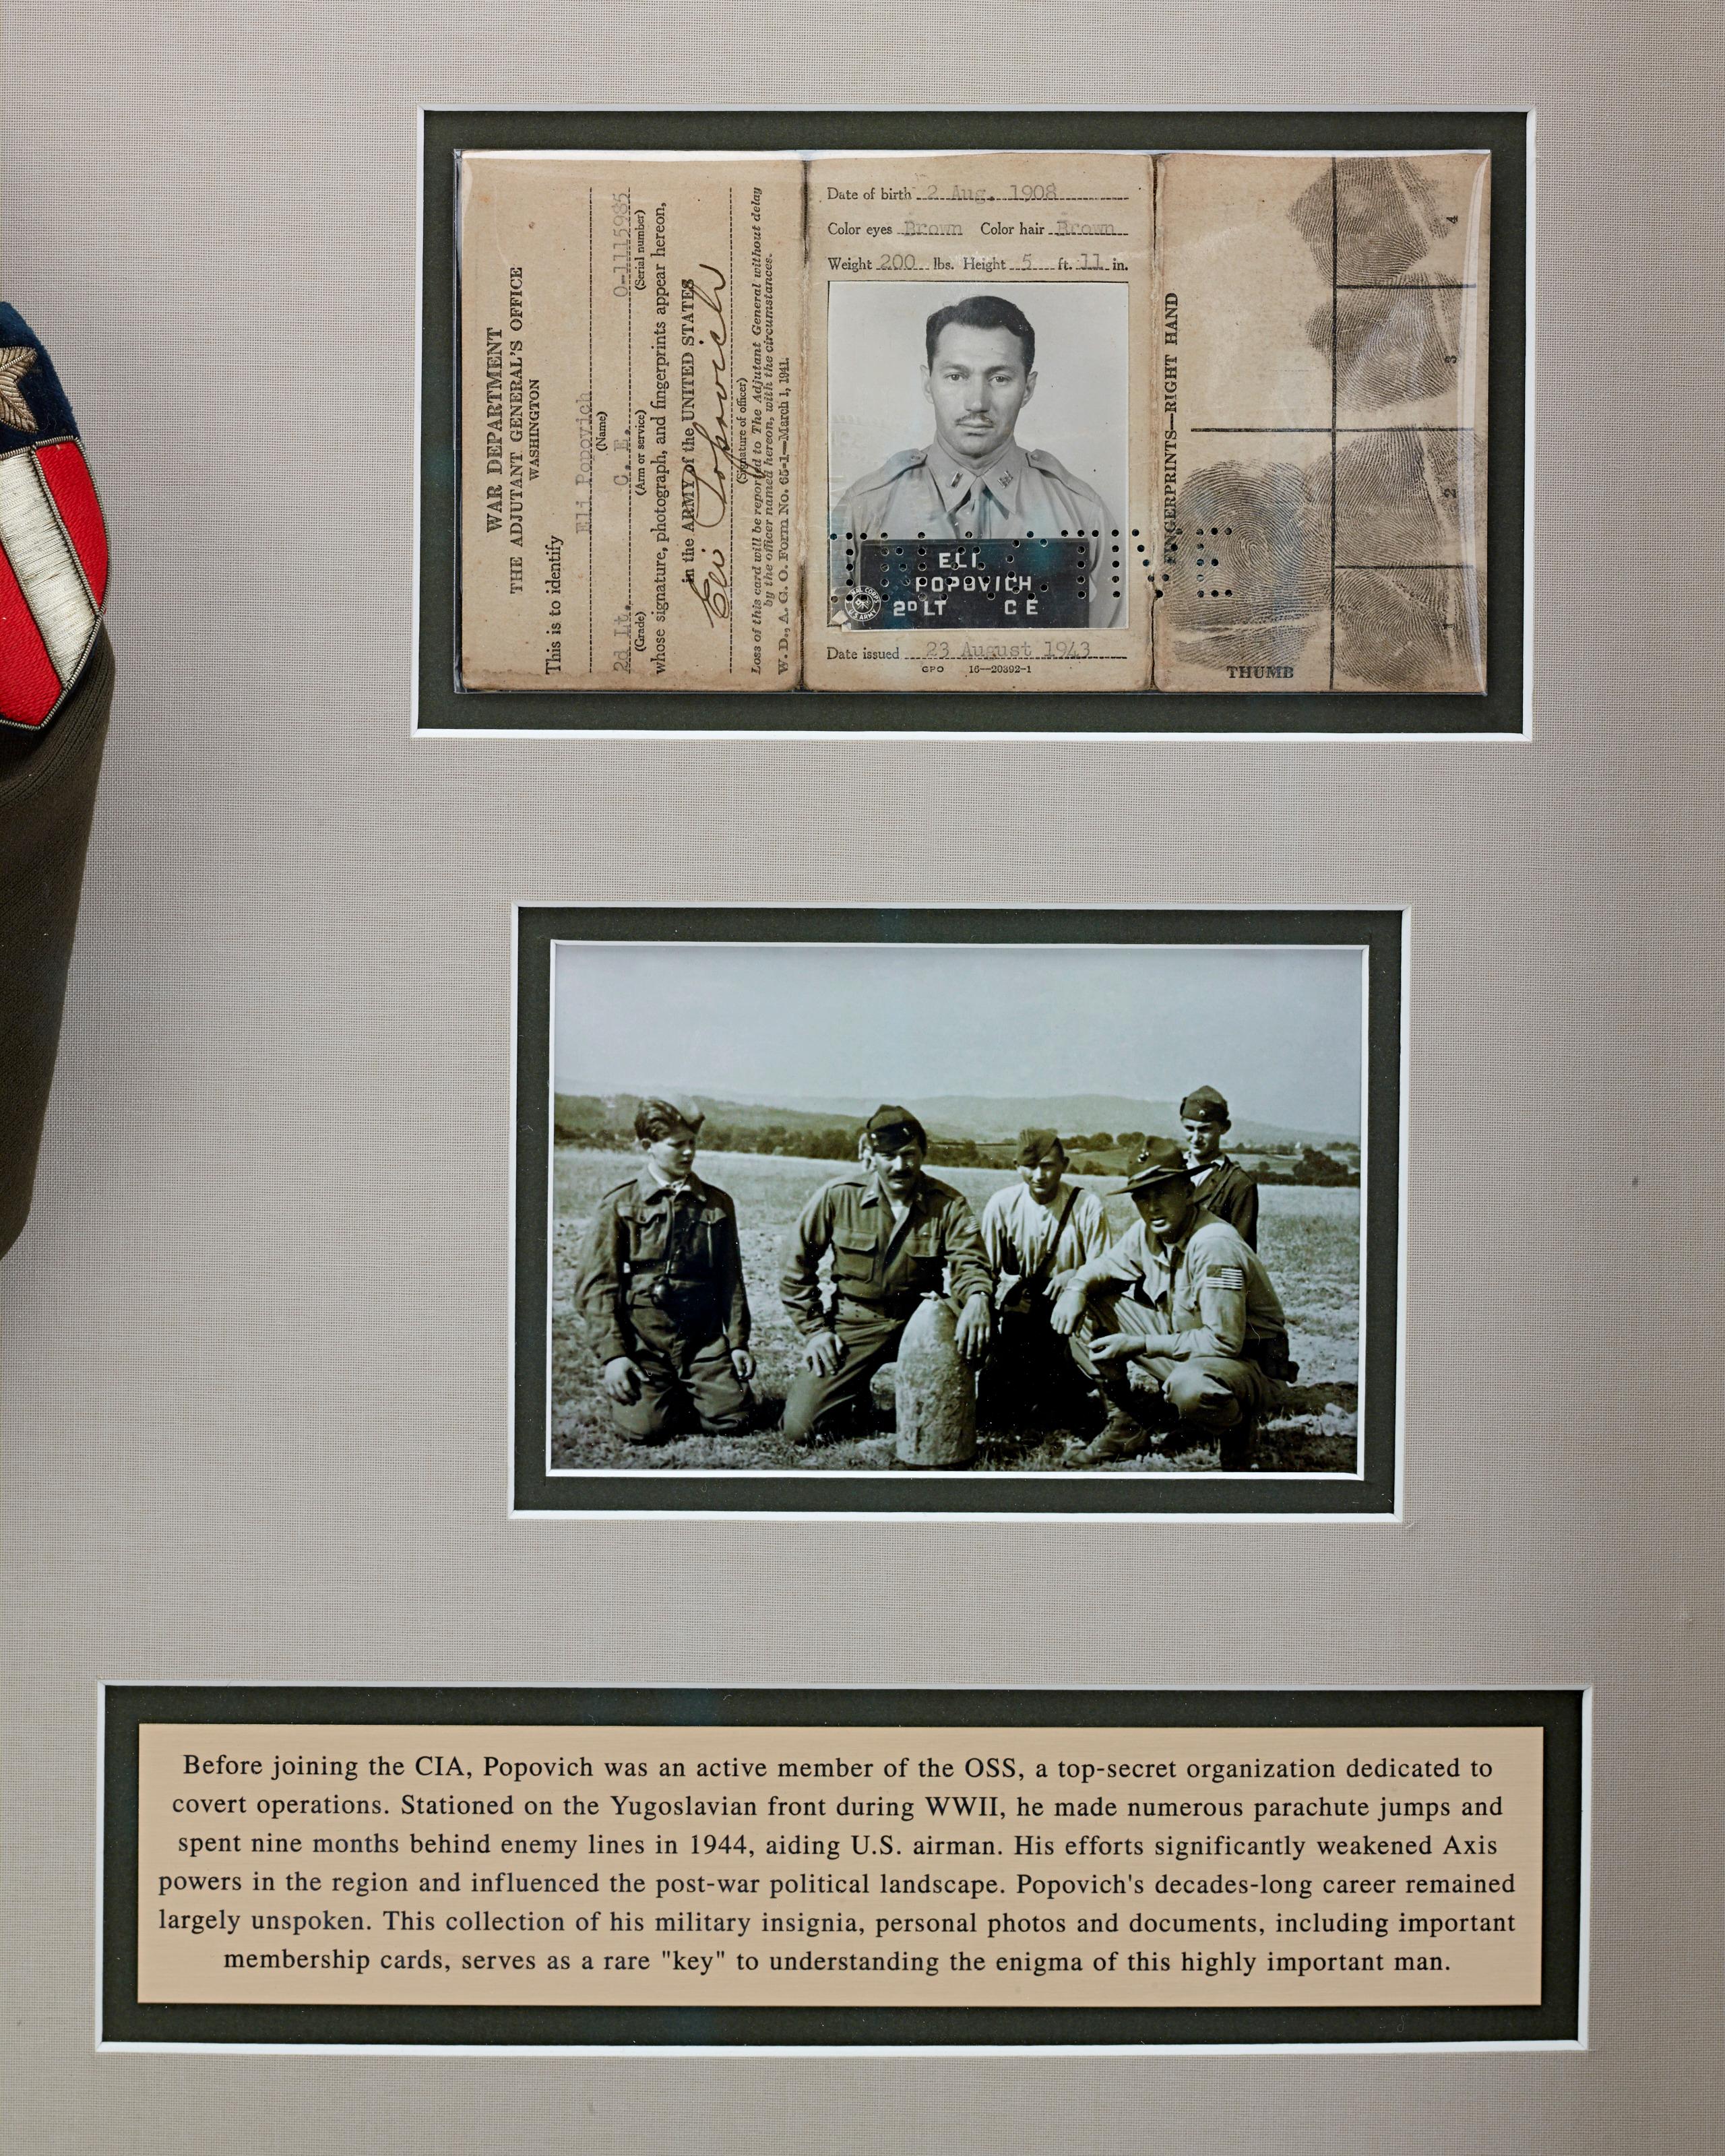 WAR DEPARTMENT
THE ADJUTANT GENERAL'S OFFICE
WASHINGTON
This is to identify
Eli Popovich
(Name)
2d Lt. C. E. O-1115985
(Grade) (Arm or service) (Serial number)
whose signature, photograph, and fingerprints appear hereon,
in the ARMY of the UNITED STATES
Eli Popovich
(Signature of officer)
Loss of this card will be reported to The Adjutant General without delay
by the officer named hereon, with the circumstances.
W. D., A. G. O. Form No. 65-1—March 1, 1941.
Date of birth 2 Aug. 1908
Color eyes Brown Color hair Brown
Weight 200 lbs. Height 5 ft. 11 in.
ELI
POPOVICH
2D LT CE
Date issued 23 August 1943
GPO 16—20392-1
FINGERPRINTS—RIGHT HAND
THUMB
1
2
3
4
Before joining the CIA, Popovich was an active member of the OSS, a top-secret organization dedicated to
covert operations. Stationed on the Yugoslavian front during WWII, he made numerous parachute jumps and
spent nine months behind enemy lines in 1944, aiding U.S. airman. His efforts significantly weakened Axis
powers in the region and influenced the post-war political landscape. Popovich's decades-long career remained
largely unspoken. This collection of his military insignia, personal photos and documents, including important
membership cards, serves as a rare "key" to understanding the enigma of this highly important man.